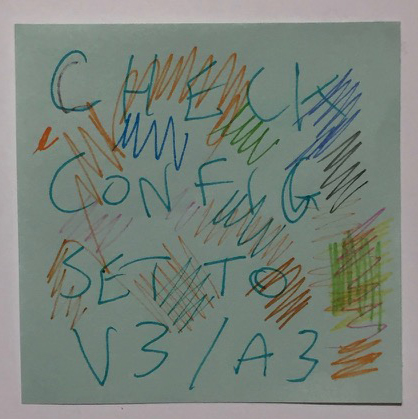 CHECK
CONFIG
SET TO
V3/A3